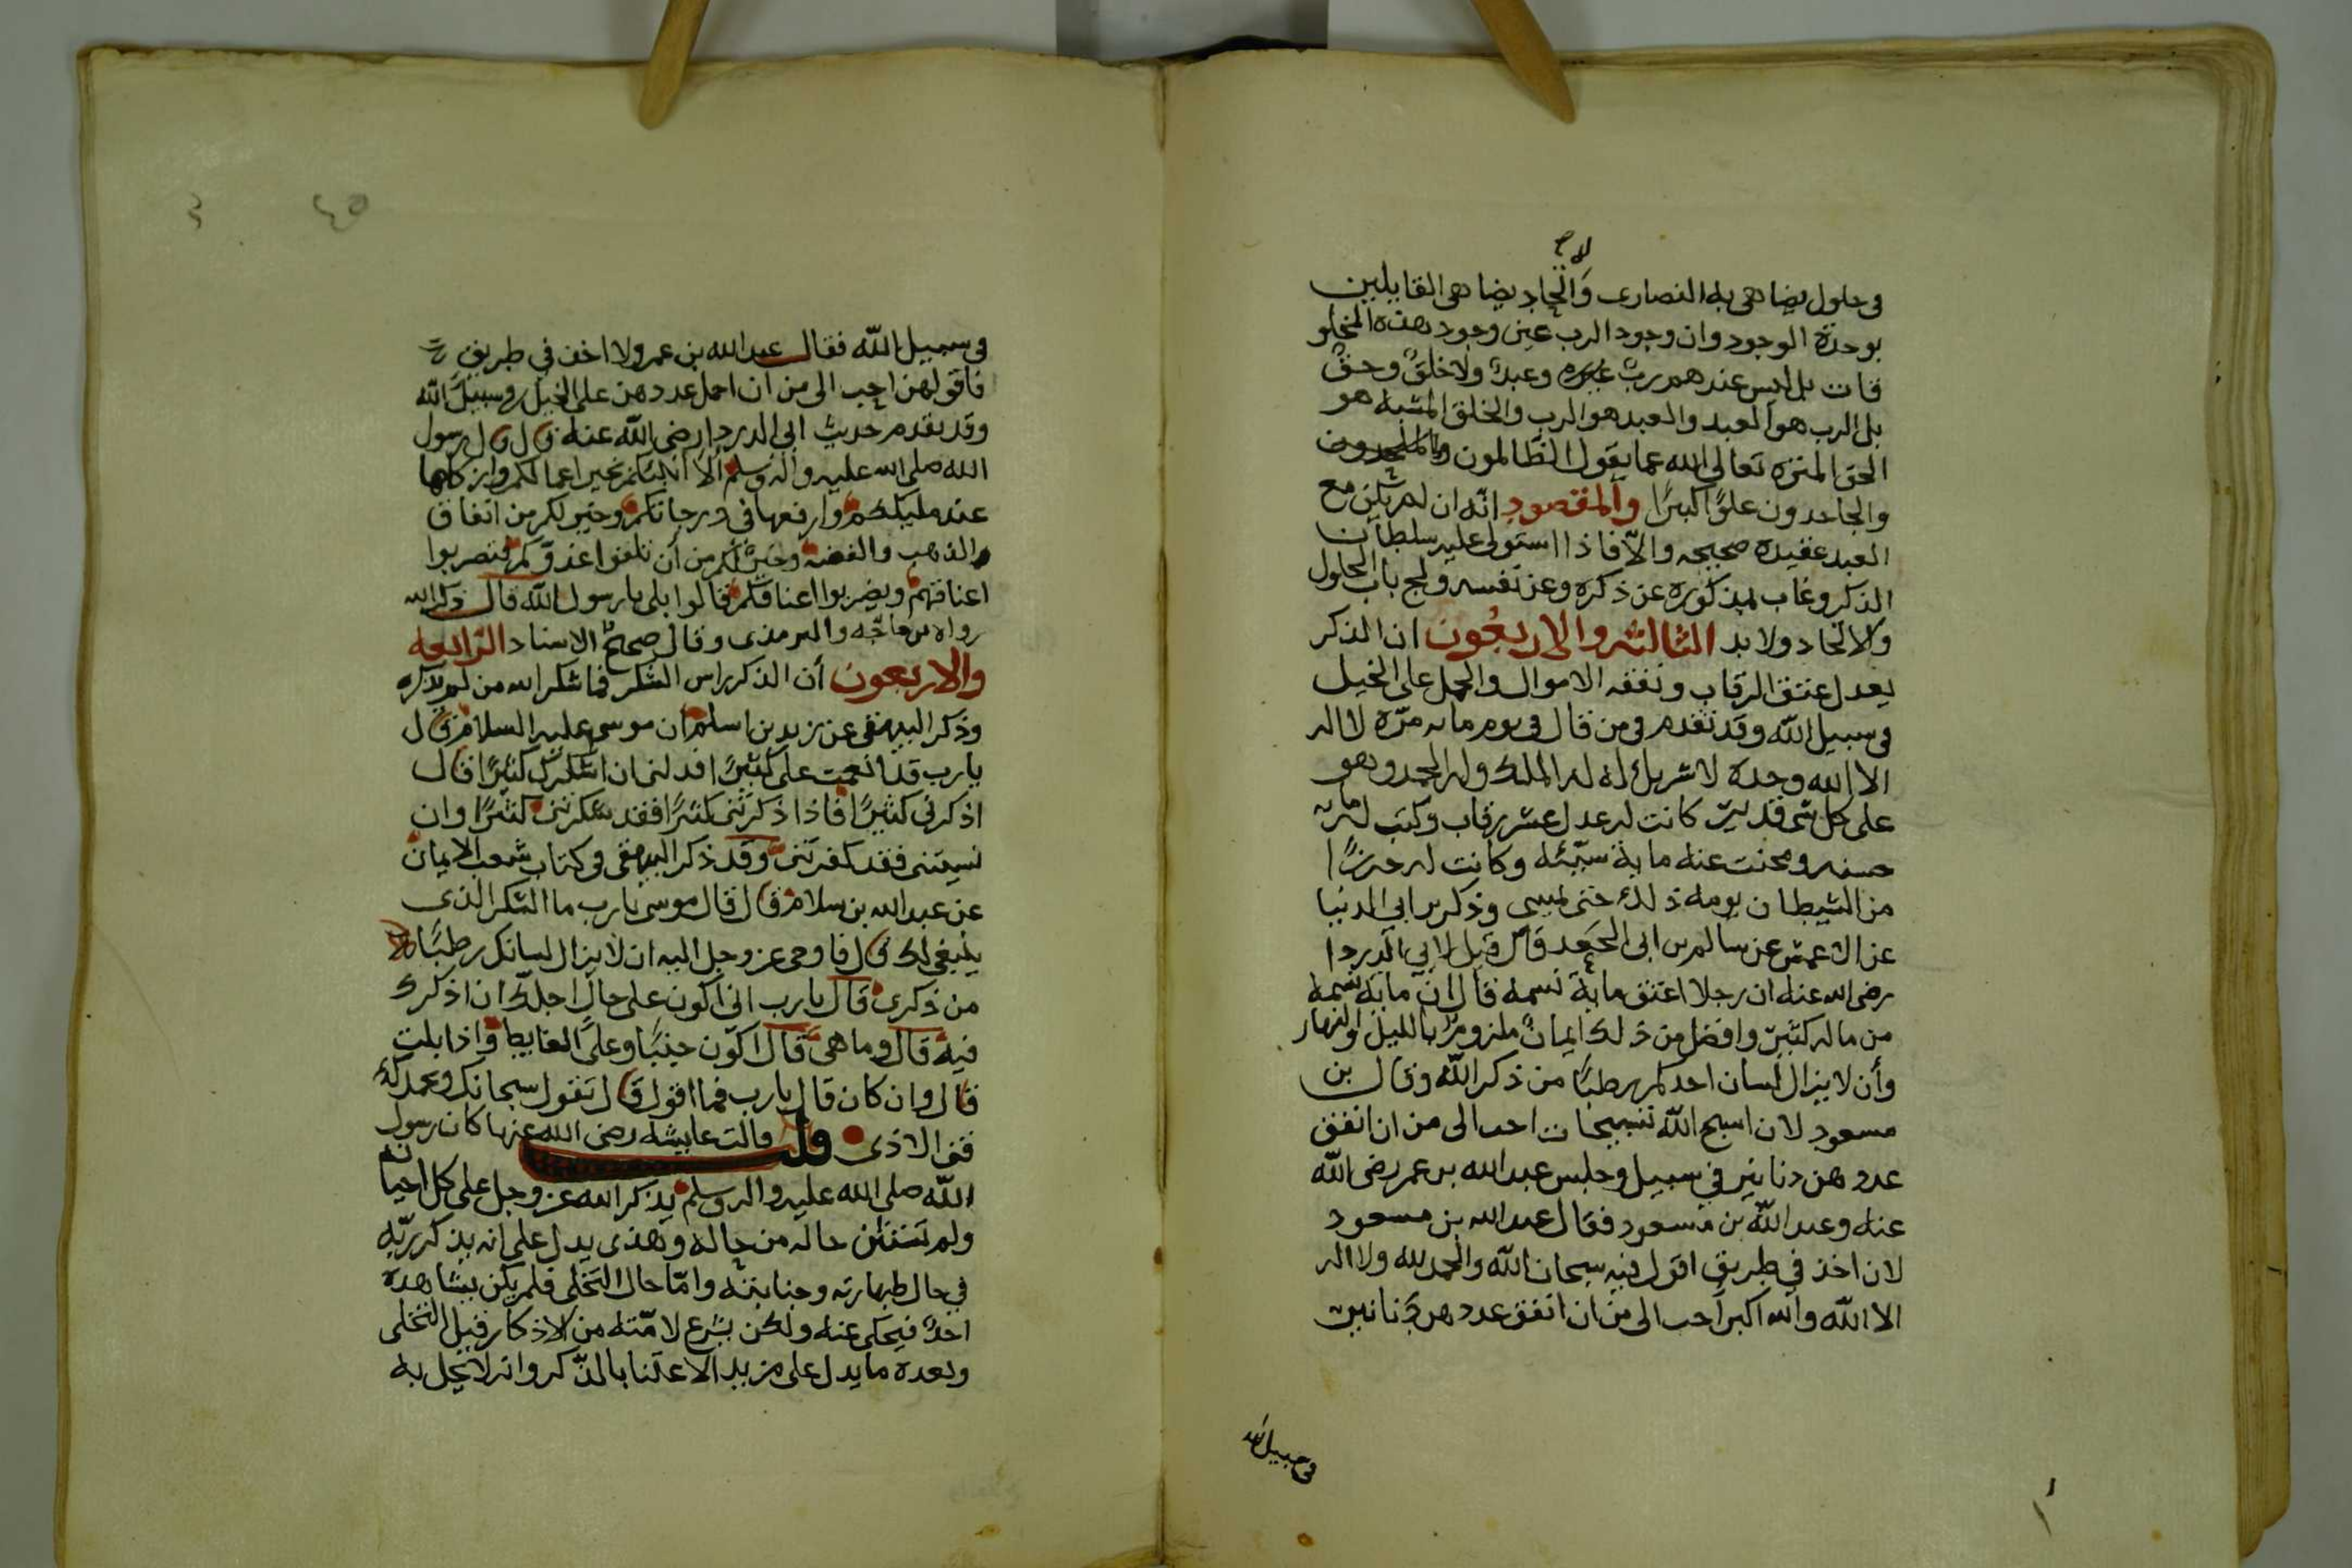 لا ح
في حلول يضاهي به النصارى واتحاد يضاهي القايلين
بوحدة الوجود وان وجود الرب عين وجود هذه المخلو
قات بل ليس عندهم رب غيره وعبد ولا خلق وحق
بل الرب هو العبد والعبد هو الرب والخلق المشبه هو
الحق المنزه تعالى الله عما يقول الظالمون
والجاحدون علوًا كبيرًا والمقصود انه ان لم يكن مع
العبد عقيده صحيحه والا فاذا استولى عليه سلطان
الذكر وغاب بمذكوره عن ذكره وعن نفسه ولج باب الحلول
والاتحاد ولا بد الثالثه والاربعون ان الذكر
يعدل عتق الرقاب ونفقه الاموال والحمل على الخيل
في سبيل الله وقد تقدم في من قال في يوم مايه مرّه لا اله
الا الله وحده لا شريك له له الملك وله الحمد وهو
على كل شي قدير كانت له عدل عشر رقاب وكتب له مايه
حسنه ومحيت عنه ماية سيّئه وكانت له حرزًا
من الشيطان يومه ذلك حتى يمسي وذكر بن ابي الدنيا
عن الاعمش عن سالم بن ابي الجعد قال قيل لابي الدردا
رضي الله عنه ان رجلا اعتق ماية نسمه قال ان ماية نسمه
من مال كثير وافضل من ذلك ايمان ملزوم بالليل والنهار
وأن لا يزال لسان احدكم رطبًا من ذكر الله وقال بن
مسعود لان اسبح الله تسبيحات احب الى من ان انفق
عددهن دنانير في سبيل وجلس عبد الله بن عمر رضي الله
عنه وعبد الله بن مسعود فقال عبد الله بن مسعود
لان اخذ في طريق اقول فيه سبحان الله والحمد لله ولا اله
الا الله والله اكبر احب الى من ان انفق عددهن دنانير
في سبيل الله
٤٥
في سبيل الله فقال عبد الله بن عمر ولا اخذ في طريق
فاقولهن احب الى من ان احمل عددهن على الخيل في سبيل الله
وقد تقدم حديث ابي الدردا رضي الله عنه قال قال رسول
الله صلى الله عليه واله وسلم ألا انبئكم بخير اعمالكم وازكاها
عند مليككم وارفعها في درجاتكم وخير لكم من انفاق
الذهب والفضه وخير لكم من أن تلقوا عدوّكم فتضربوا
اعناقهم ويضربوا اعناقكم قالوا بلى يا رسول الله قال ذكر الله
رواه بن ماجّه والترمذي وقال صحيح الاسناد الرابعه
والاربعون أن الذكر راس الشكر فما شكر الله من لم يذكره
وذكر البيهقي عن زيد بن اسلم ان موسى عليه السلام قال
يا رب قد انعمت على كثيرًا فدلني ان اشكرك كثيرًا قال
اذكرني كثيرًا فاذا ذكرتني كثيرًا فقد شكرتني كثيرًا وان
نسيتني فقد كفرتني وقد ذكر البيهقي في كتاب شعب الايمان
عن عبد الله بن سلام قال قال موسى يا رب ما الشكر الذي
ينبغي لك قال فاوحى عز وجل اليه ان لا يزال لسانك رطبًا
من ذكري قال يا رب اني اكون على حال اجلك ان اذكرك
فيه قال وما هي قال اكون جنبًا وعلى الغايط واذا بلت
قال وان كان قال يا رب فما اقول قال تقول سبحانك وبحمدك
فقى الاذى قلت قالت عايشه رضي الله عنها كان رسول
الله صلى الله عليه واله وسلم يذكر الله عز وجل على كل احيانه
ولم تستثن حاله من حاله وهذى يدل على انه يذكر ربّه
في حال طهارته وجنابته وامّا حال التخلى فلم يكن يشاهده
احدٌ فيحكى عنه ولكن شرع لامّته من الاذكار قبل التخلى
وبعده ما يدل على مزيد الاعتنا بالذكر وانه لا يخل به